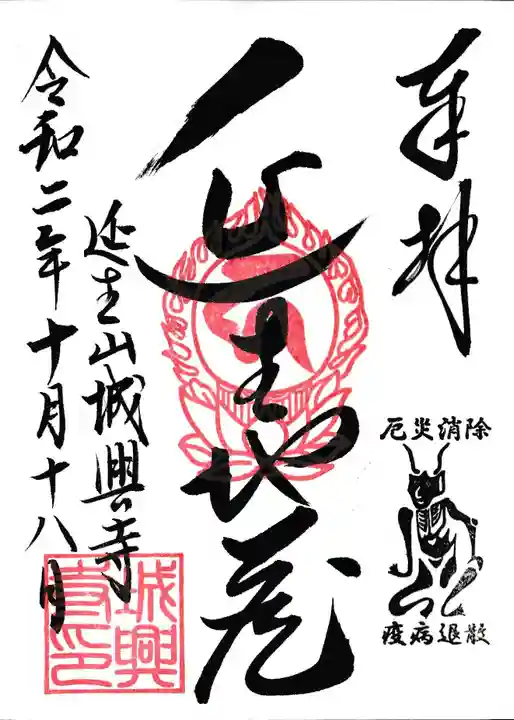 奉拝
厄災消除
疫病退散
延生地蔵
延生山城興寺
令和二年十月十八日
城興
寺印